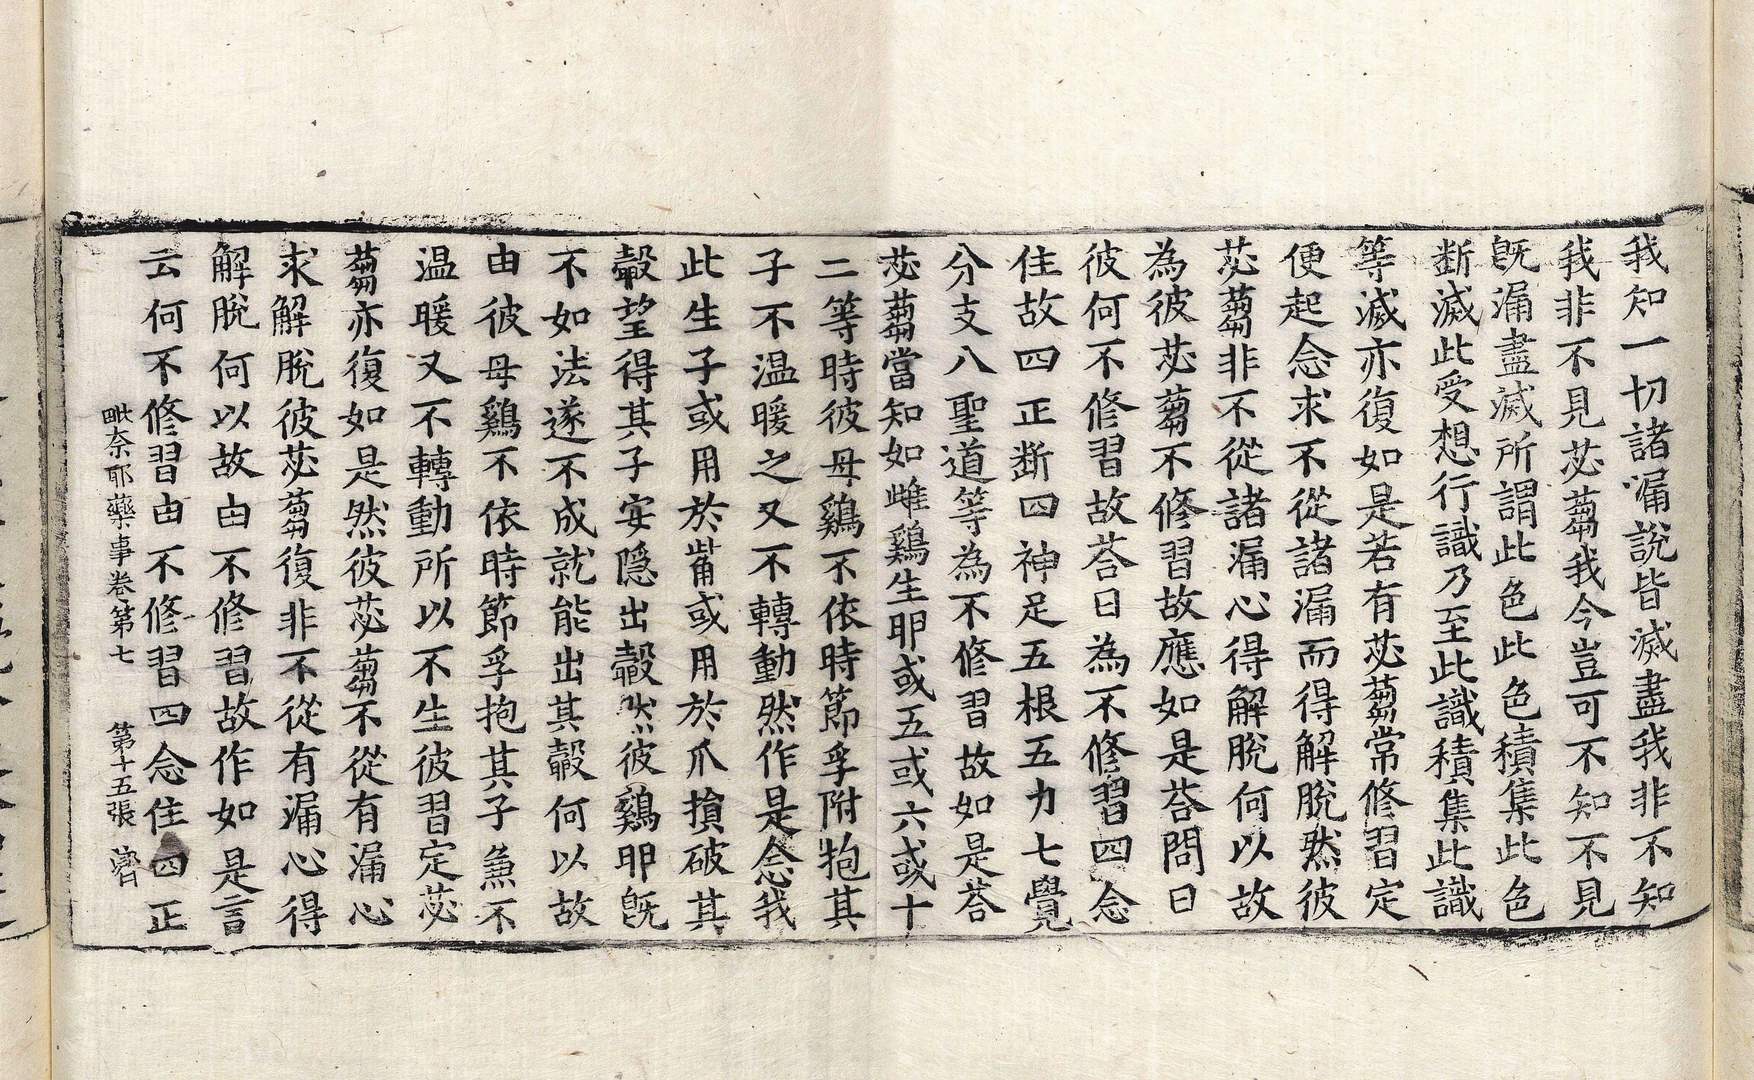 我知一切諸漏說皆滅盡我非不知
我非不見苾蒭我今豈可不知不見
既漏盡滅所謂此色此色積集此色
断滅此受想行識乃至此識積集此識
等滅亦復如是若有苾蒭常修習定
便起念求不從諸漏而得解脫然彼
苾蒭非不從諸漏心得解脫何以故
為彼苾蒭不修習故應如是荅問曰
彼何不修習故荅曰為不修習四念
住故四正断四神足五根五力七覺
分支八聖道等為不修習故如是荅
苾蒭當知如雌鷄生卵或五或六或十
二等時彼母鷄不依時節孚附抱其
子不温暖之又不轉動然作是念我
此生子或用於觜或用於爪損破其
㲉望得其子安隱出㲉然彼鷄卵既
不如法遂不成就能出其㲉何以故
由彼母鷄不依時節孚抱其子兼不
温暖又不轉動所以不生彼習定苾
蒭亦復如是然彼苾蒭不從有漏心
求解脫彼苾蒭復非不從有漏心得
解脫何以故由不修習故作如是言
云何不修習由不修習四念住四正
毗奈耶藥事卷第七 第十五張